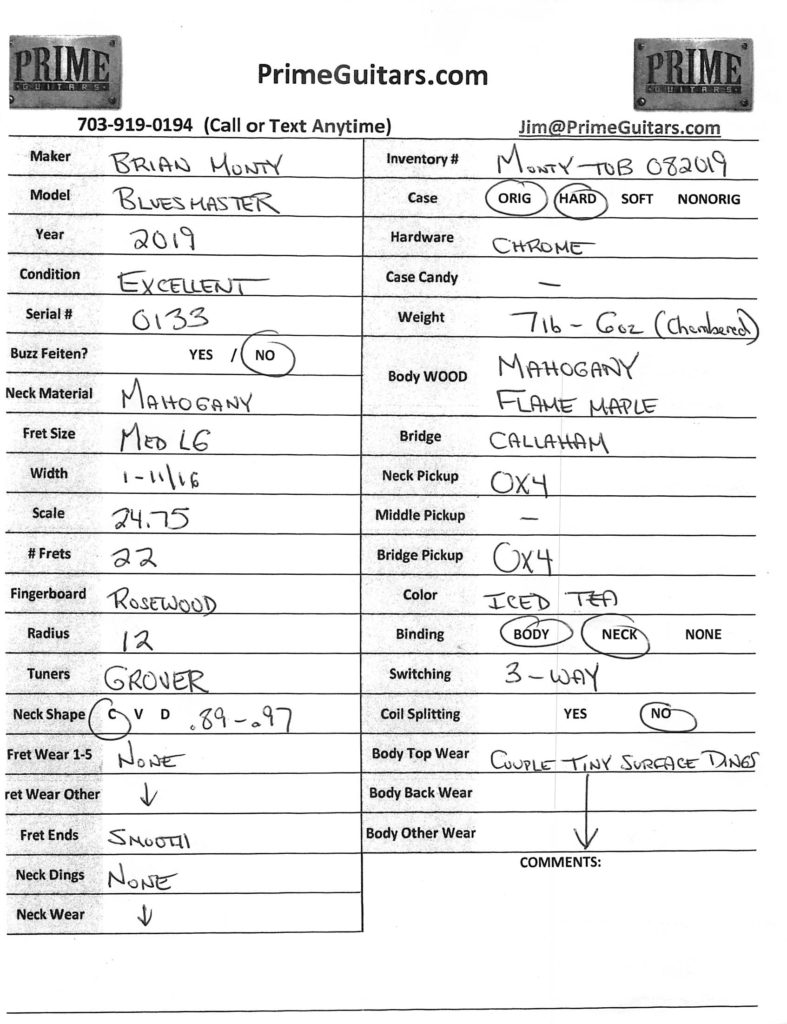 PRIME
GUITARS
PrimeGuitars.com
PRIME
GUITARS
703-919-0194 (Call or Text Anytime)
Jim@PrimeGuitars.com
Maker BRIAN MONTY
Model BLUESMASTER
Year 2019
Condition EXCELLENT
Serial # 0133
Buzz Feiten? YES / NO
Neck Material MAHOGANY
Fret Size MED LG
Width 1-11/16
Scale 24.75
# Frets 22
Fingerboard ROSEWOOD
Radius 12
Tuners GROVER
Neck Shape C V D .89-.97
Fret Wear 1-5 NONE
ret Wear Other ↓
Fret Ends SMOOTH
Neck Dings NONE
Neck Wear ↓
Inventory # MONTY-TOB 082019
Case ORIG HARD SOFT NONORIG
Hardware CHROME
Case Candy —
Weight 7lb - 6oz (Chambered)
Body WOOD MAHOGANY
FLAME MAPLE
Bridge CALLAHAM
Neck Pickup OX4
Middle Pickup —
Bridge Pickup OX4
Color ICED TEA
Binding BODY NECK NONE
Switching 3-WAY
Coil Splitting YES NO
Body Top Wear COUPLE TINY SURFACE DINGS
Body Back Wear
Body Other Wear ↓
COMMENTS: